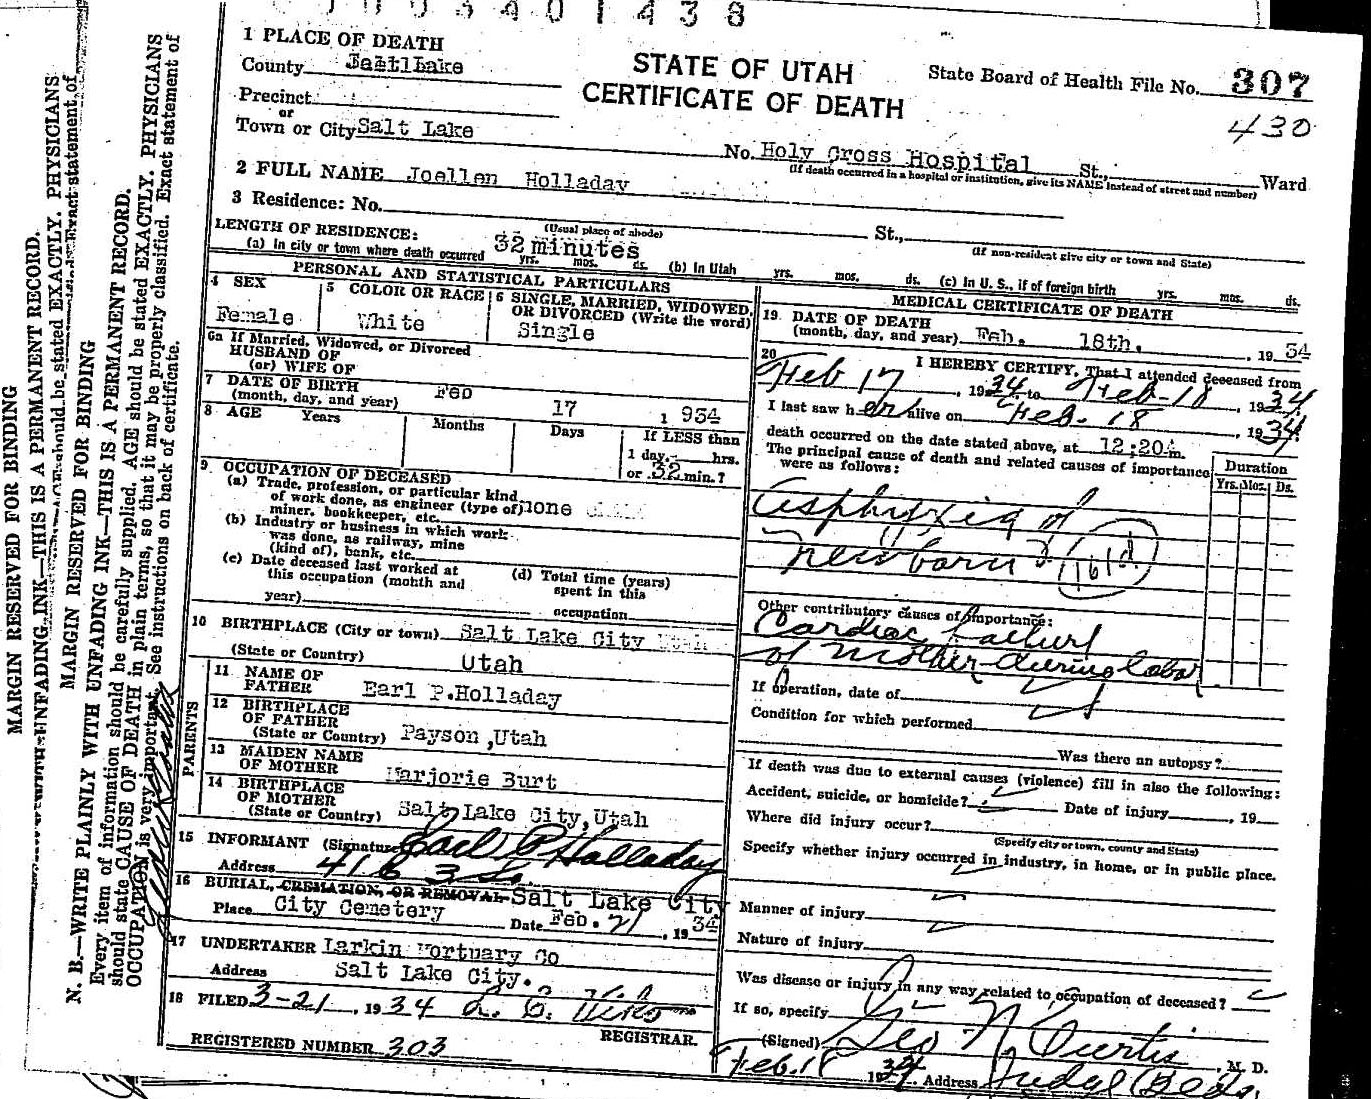 0003401438
1 PLACE OF DEATH
County Salt Lake
Precinct
or
Town or City Salt Lake
STATE OF UTAH
CERTIFICATE OF DEATH
State Board of Health File No. 307
430
No. Holy Cross Hospital St., Ward
(If death occurred in a hospital or institution, give its NAME instead of street and number)
2 FULL NAME Joellen Holladay
3 Residence: No. St.,
(Usual place of abode) (If non-resident give city or town and State)
LENGTH OF RESIDENCE:
(a) In city or town where death occurred 32 minutes yrs. mos. ds. (b) In Utah yrs. mos. ds. (c) In U. S., if of foreign birth yrs. mos. ds.
PERSONAL AND STATISTICAL PARTICULARS
4 SEX
Female
5 COLOR OR RACE
White
6 SINGLE, MARRIED, WIDOWED, OR DIVORCED (Write the word)
Single
6a If Married, Widowed, or Divorced
HUSBAND OF
(or) WIFE OF
7 DATE OF BIRTH
(month, day, and year) Feb 17 1934
8 AGE Years Months Days
If LESS than
1 day, hrs.
or 32 min.?
9 OCCUPATION OF DECEASED
(a) Trade, profession, or particular kind
of work done, as engineer (type of) none
miner, bookkeeper, etc.
(b) Industry or business in which work
was done, as railway, mine
(kind of), bank, etc.
(c) Date deceased last worked at
this occupation (month and
year)
(d) Total time (years)
spent in this
occupation
10 BIRTHPLACE (City or town) Salt Lake City Utah
(State or Country) Utah
PARENTS
11 NAME OF
FATHER Earl P. Holladay
12 BIRTHPLACE
OF FATHER
(State or Country) Payson, Utah
13 MAIDEN NAME
OF MOTHER Marjorie Burt
14 BIRTHPLACE
OF MOTHER
(State or Country) Salt Lake City, Utah
15 INFORMANT (Signature) Earl P Holladay
Address
16 BURIAL, CREMATION, OR REMOVAL Salt Lake City
Place City Cemetery Date Feb. 21, 1934
17 UNDERTAKER Larkin Mortuary Co
Address Salt Lake City.
18 FILED 3-21, 1934
REGISTRAR.
REGISTERED NUMBER 303
MEDICAL CERTIFICATE OF DEATH
19 DATE OF DEATH
(month, day, and year) Feb. 18th. , 1934
20 I HEREBY CERTIFY, That I attended deceased from
Feb 17, 1934 to Feb-18, 1934
I last saw her alive on Feb-18, 1934
death occurred on the date stated above, at 12:20 m.
The principal cause of death and related causes of importance
were as follows:
Duration
Yrs. Mos. Ds.
Asphyxia of
newborn 161d
Other contributory causes of importance:
Cardiac failure
of mother during labor
If operation, date of
Condition for which performed
Was there an autopsy?
If death was due to external causes (violence) fill in also the following:
Accident, suicide, or homicide? Date of injury , 19
Where did injury occur?
(Specify city or town, county and State)
Specify whether injury occurred in industry, in home, or in public place.
Manner of injury
Nature of injury
Was disease or injury in any way related to occupation of deceased?
If so, specify
(Signed) Geo N Curtis, M. D.
Feb. 18 1934. Address Judge Bldg
MARGIN RESERVED FOR BINDING
MARGIN RESERVED FOR BINDING
N. B.—WRITE PLAINLY WITH UNFADING INK—THIS IS A PERMANENT RECORD.
Every item of information should be carefully supplied. AGE should be stated EXACTLY. PHYSICIANS
should state CAUSE OF DEATH in plain terms, so that it may be properly classified. Exact statement of
OCCUPATION is very important. See instructions on back of certificate.